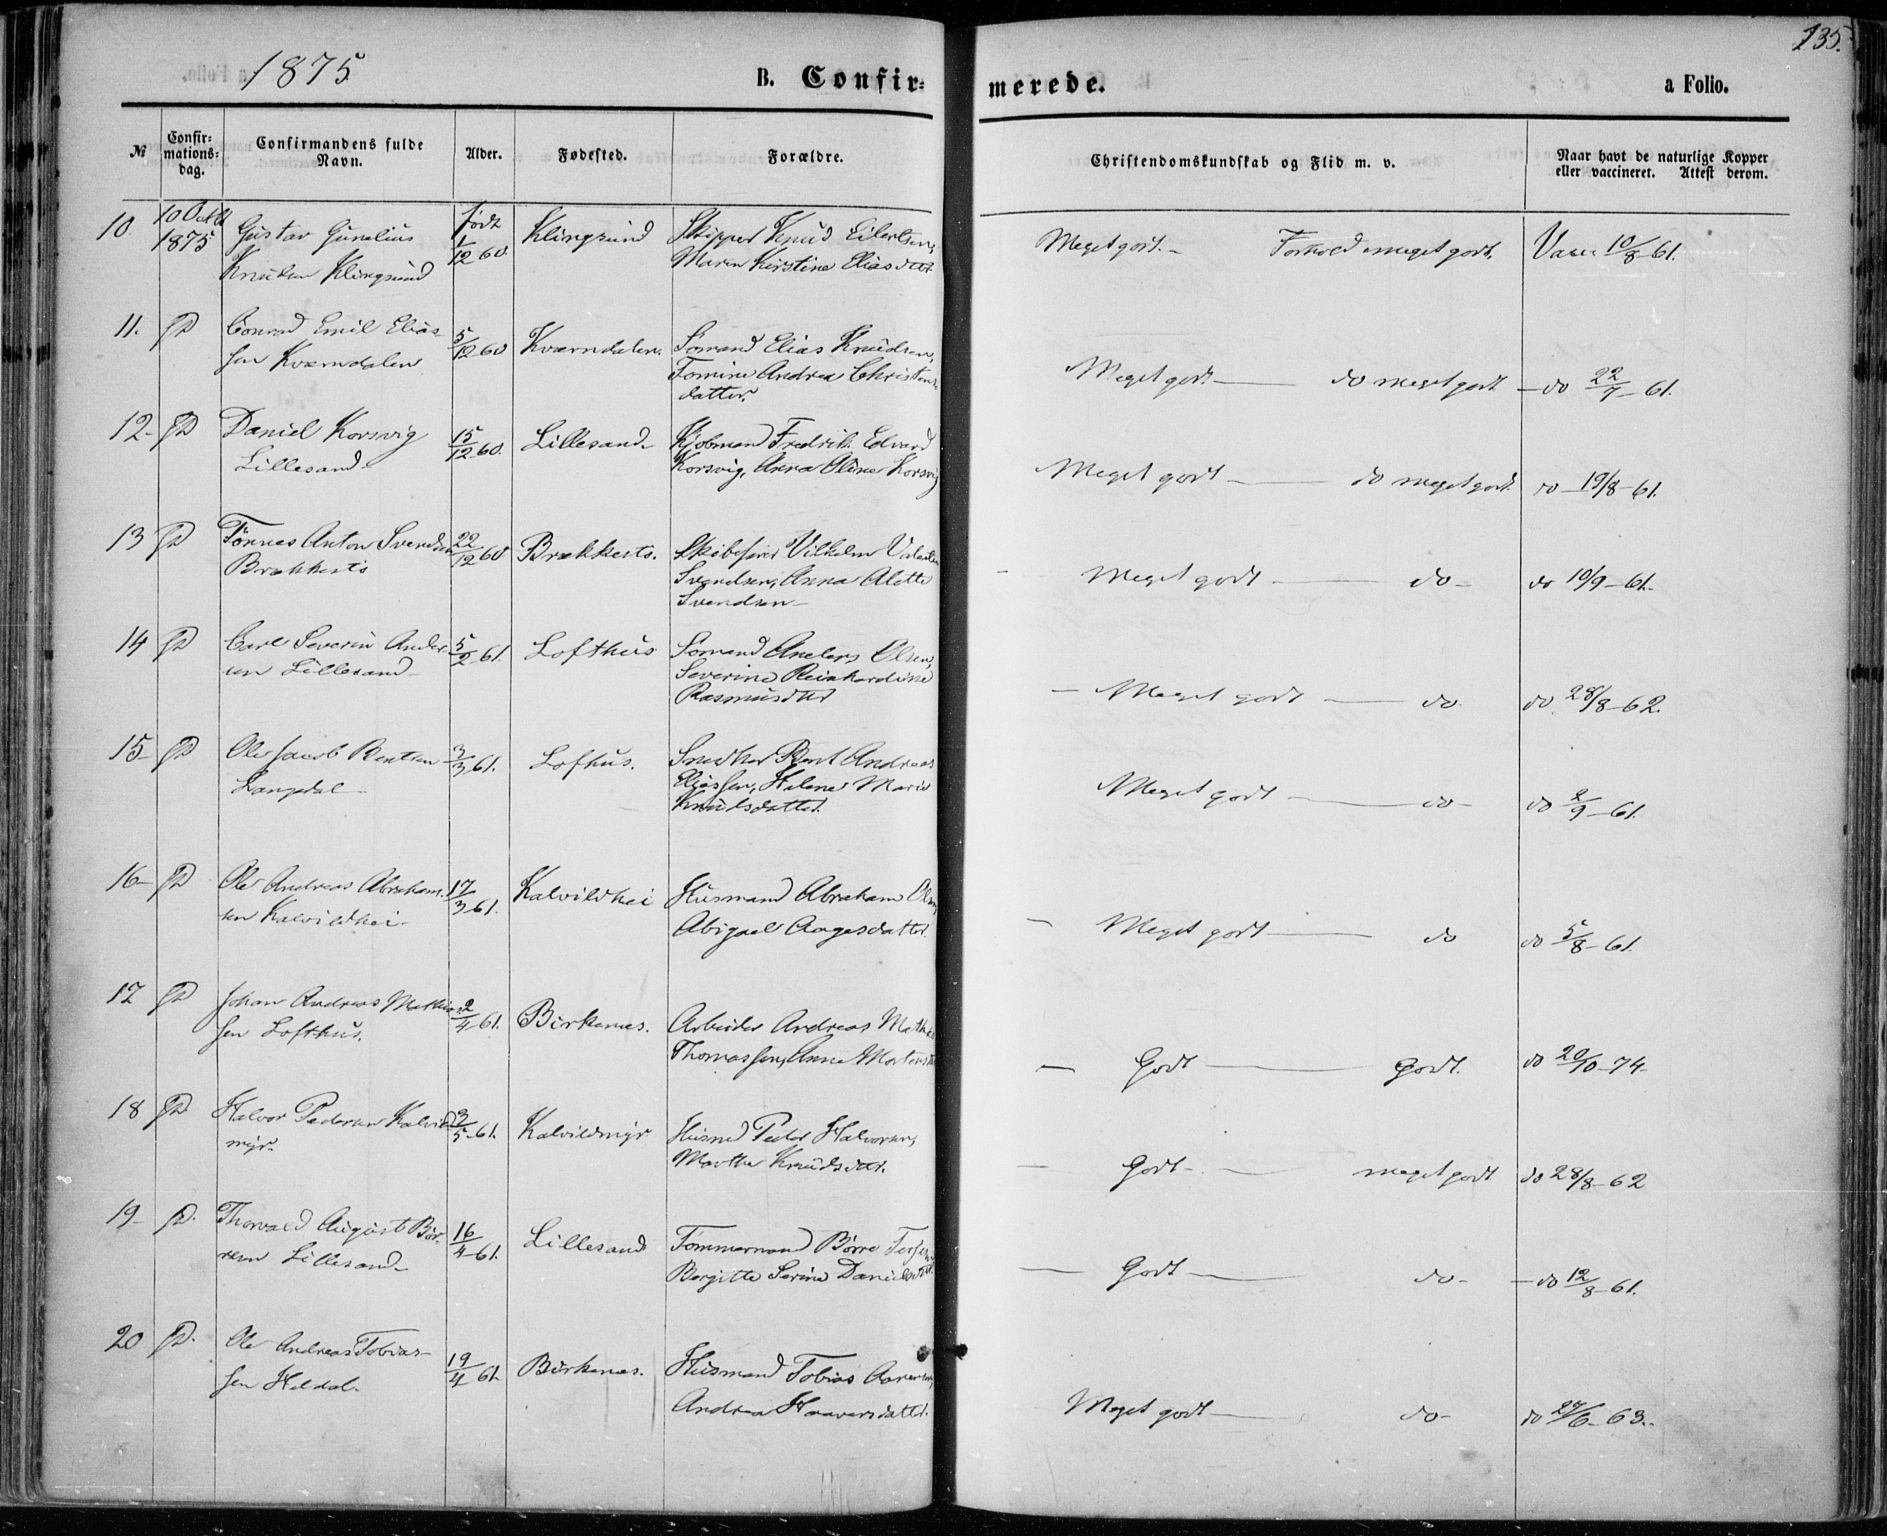 1875
135.
B. Confir=
merede.
a Folio.
№
Confir=
mations=
dag.
Confirmandens fulde
Navn.
Alder.
Fødested.
Forældre.
Christendomskundskab og Flid m. v.
Naar havt de naturlige Kopper
eller vaccineret. Attest derom.
10 10 Octb 1875 Gustav Gunelius født 1/12 60. Klingsund Skipper Knud Eilertsen, Meget godt. – Forhold meget godt. Vacc 10/8 61.
Knudsen Klingsund Maren Kirstine Eliasdtr
11. D Conrad Emil Elias- 5/12 60 Kværndalen. Sømand Elias Knudsen, Meget godt — do meget godt — do 22/7 – 61.
sen Kværndalen Tomine Andrea Christens-
datter.
12- D Daniel Korsvig 15/12 60. Lillesand Kjøbmand Fredrik Edvard Meget godt — do meget godt. do – 19/8 – 61.
Lillesand Korsvig, Anna Oline Korsvig
13 D Tønnes Anton Svendsen 22/12 60 Brækkestø. Skibsfører Vilhelm Meget godt — do – do 10/9 – 61.
Brækkestø Svendsen, Anna Alette
Svendsen –
14 D Carl Severin Ander- 5/2 61. Lofthus Sømand Anders Olsen, – Meget godt — do do 28/8 – 62.
sen Lillesand Severine Reinhardine
Rasmusdtr
15- D Ole Jacob Bentsen 3/3 61. Lofhus. Snedker Bent Andreas Meget godt — do – do 2/9 – 61.
Langedal – Eliassen, Helene Marie
Knudsdatter.
16- D Ole Andreas Abraham- 17/3 61. Kalvildhei Husmand Abraham Olsen – Meget godt — do do 5/8 – 61.
sen Kalvildhei. Abigael Aagesdatter.
17 D Johan Andreas Mathias- 2/4 61. Birkenes. Arbeider Andreas Mathias – Godt — Godt. do 20/10 – 74.
sen Lofthus. Thomassen, Anne
18 D Halvor Pedersen Kalvild- 3/5 61. Kalvildmyr Husmd Peder Halvorsen, – Godt – — meget godt do 28/8 – 62
myr. Marthe Knudsdtr.
19- D. Thorvald August Bør- 16/4 61. Lillesand Tømmermand Børre Terjesen – Godt — do – – do 12/8 – 61.
resen Lillesand Bergitte Serine Danielsdtr.
20 D. Ole Andreas Tobias- 19/4 61. Birkenes. Husmand Tobias Meget godt — do – do 24/6 – 63.
sen Heldal. Andrea Haaversdatter.